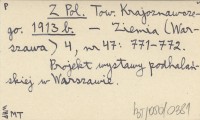 P
Z Pol. Tow. Krajoznawcze-
go. 1913 b. — Ziemia (War-
szawa) 4, nr 47: 771-772.
Projekt wystawy podhalań-
skiej w Warszawie.
MT